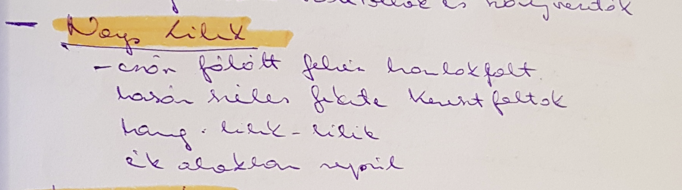 és könyvelők
- Nagy Lilik
- csőr fölött fehér homlokfolt
hasán széles fekete keresztfoltok
hang: lilik - lilik
ék alakban repül